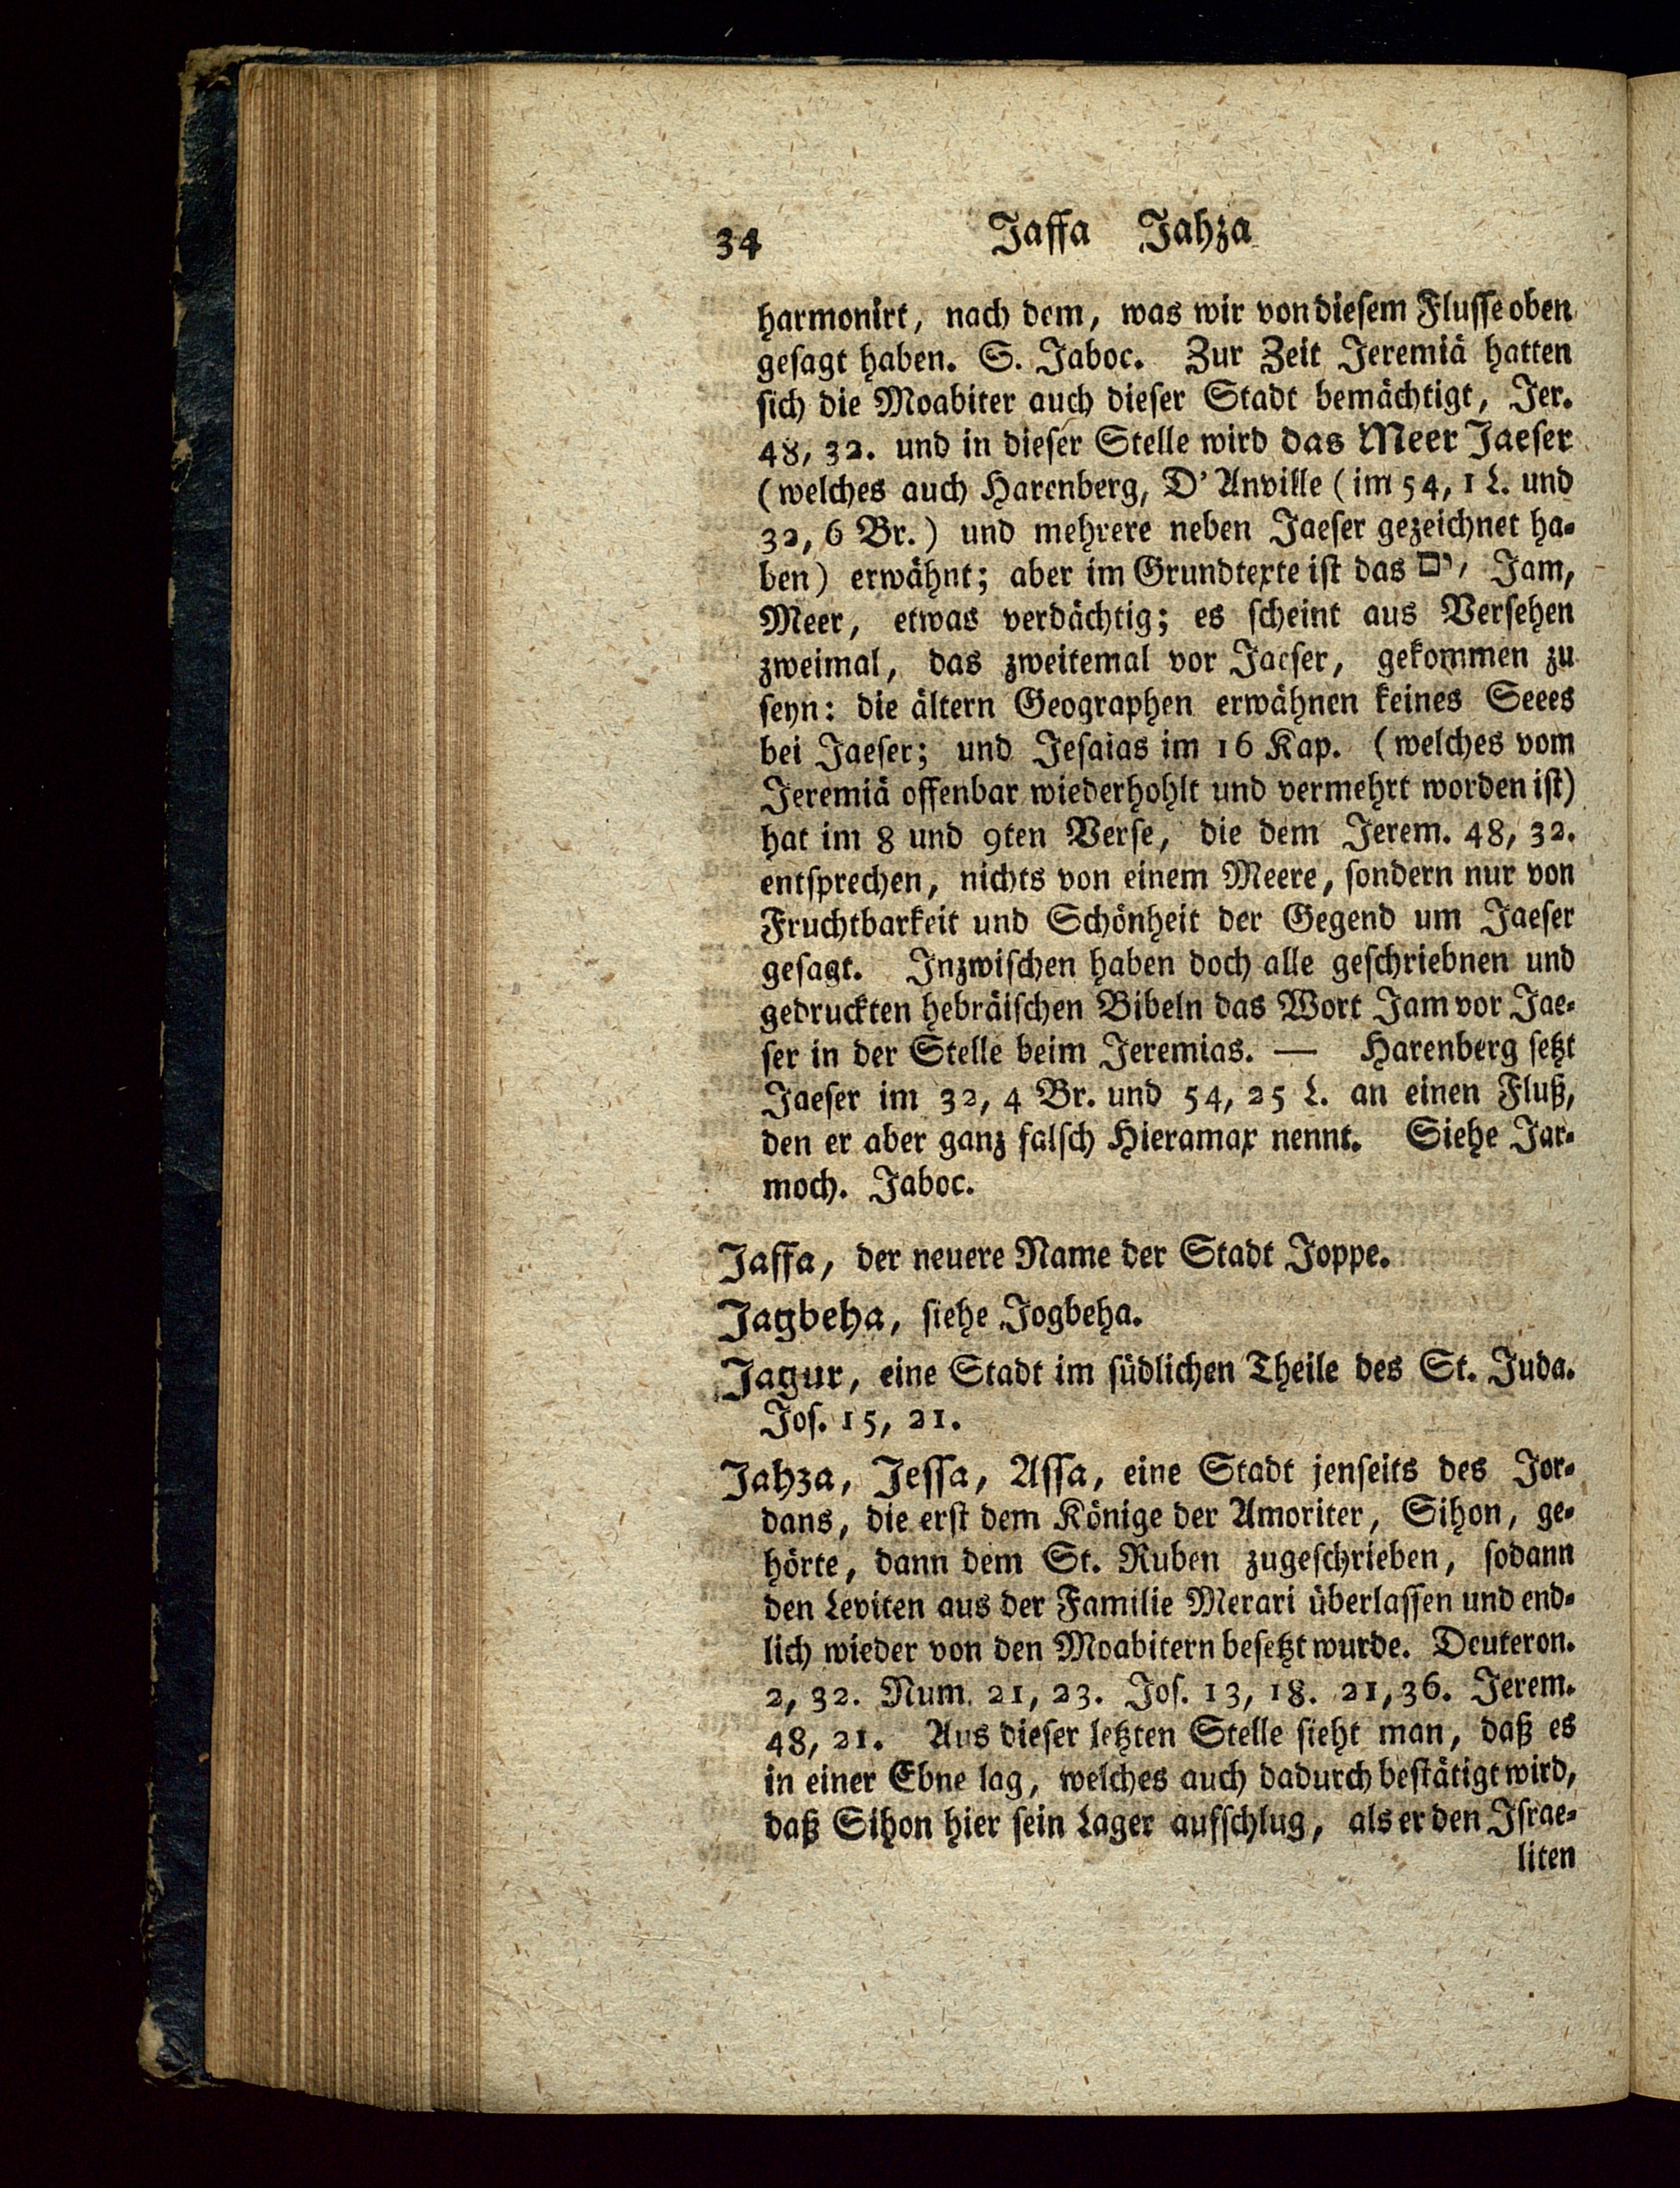 34 Jaffa Jahza
harmonirt, nach dem, was wir von diesem Flusse oben
gesagt haben. S. Jaboc. Zur Zeit Jeremiä hatten
sich die Moabiter auch dieser Stadt bemächtigt, Jer.
48, 32. und in dieser Stelle wird das Meer Jaeser
(welches auch Harenberg, D'Anville (im 54, 1 L. und
32, 6 Br.) und mehrere neben Jaeser gezeichnet ha-
ben) erwähnt; aber im Grundtexte ist das ים, Jam,
Meer, etwas verdächtig; es scheint aus Versehen
zweimal, das zweitemal vor Jaeser, gekommen zu
seyn: die ältern Geographen erwähnen keines Seees
bei Jaeser; und Jesaias im 16 Kap. (welches vom
Jeremiä offenbar wiederhohlt und vermehrt worden ist)
hat im 8 und 9ten Verse, die dem Jerem. 48, 32.
entsprechen, nichts von einem Meere, sondern nur von
Fruchtbarkeit und Schönheit der Gegend um Jaeser
gesagt. Inzwischen haben doch alle geschriebnen und
gedruckten hebräischen Bibeln das Wort Jam vor Jae-
ser in der Stelle beim Jeremias. — Harenberg setzt
Jaeser im 32, 4 Br. und 54, 25 L. an einen Fluß,
den er aber ganz falsch Hieramax nennt. Siehe Jar-
moch. Jaboc.
Jaffa, der neuere Name der Stadt Joppe.
Jagbeha, siehe Jogbeha.
Jagur, eine Stadt im südlichen Theile des St. Juda.
Jos. 15, 21.
Jahza, Jessa, Assa, eine Stadt jenseits des Jor-
dans, die erst dem Könige der Amoriter, Sihon, ge-
hörte, dann dem St. Ruben zugeschrieben, sodann
den Leviten aus der Familie Merari überlassen und end-
lich wieder von den Moabitern besetzt wurde. Deuteron.
2, 32. Num. 21, 23. Jos. 13, 18. 21, 36. Jerem.
48, 21. Aus dieser letzten Stelle sieht man, daß es
in einer Ebne lag, welches auch dadurch bestätigt wird,
daß Sihon hier sein Lager aufschlug, als er den Israe-
liten